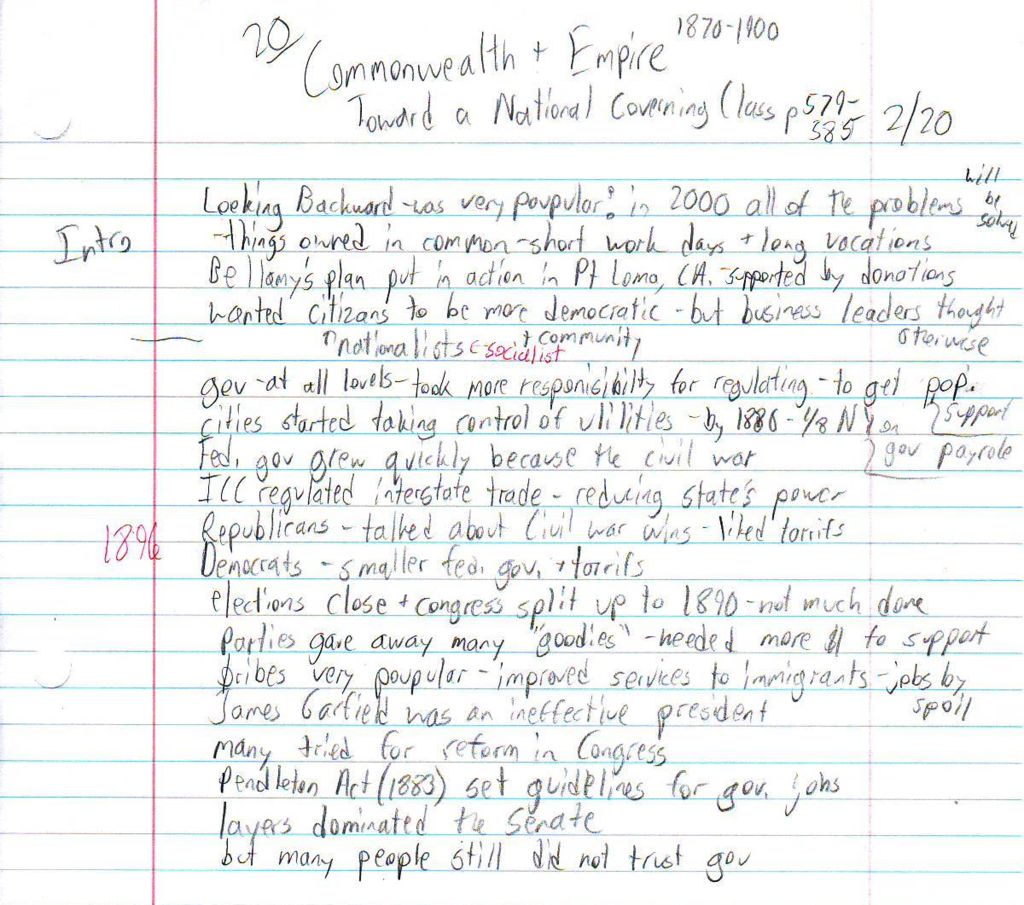 20/ Commonwealth + Empire 1870-1900
Toward a National Governing Class p 579-585 2/20
Looking Backward-was very poupular: in 2000 all of the problems will be solved
Intro -things owned in common-short work days + long vacations
Bellamy's plan put in action in Pt Loma, CA. -supported by donations
wanted citizans to be more democratic -but business leaders thought otherwise
nationalists socialist + community
gov-at all levels-took more responisibilty for regulating-to get pop. support
cities started taking control of utilities -by 1886-1/8 NY on gov payrole
Fed. gov grew quickly because the civil war
ICC regulated interstate trade - reducing state's power
Republicans - talked about Civil war wins - liked tarrifs
1896
Democrats - smaller fed. gov. + tarrifs
elections close + congress split up to 1890-not much done
parties gave away many "goodies" -needed more $ to support
bribes very poupular-improved services to immigrants-jobs by spoil
James Garfield was an ineffective president
many tried for reform in Congress
Pendleton Act (1883) set guidelines for gov. jobs
layers dominated the Senate
but many people still did not trust gov